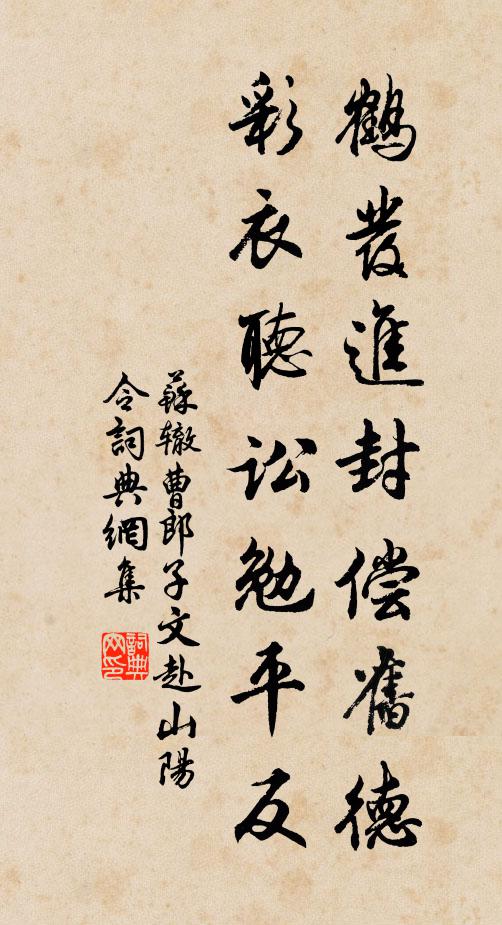 鶴發進封偿舊德
彩衣聽訟勉平反
蘇辙曹郎子文赴山陽
令詞典網集
詞典
网印